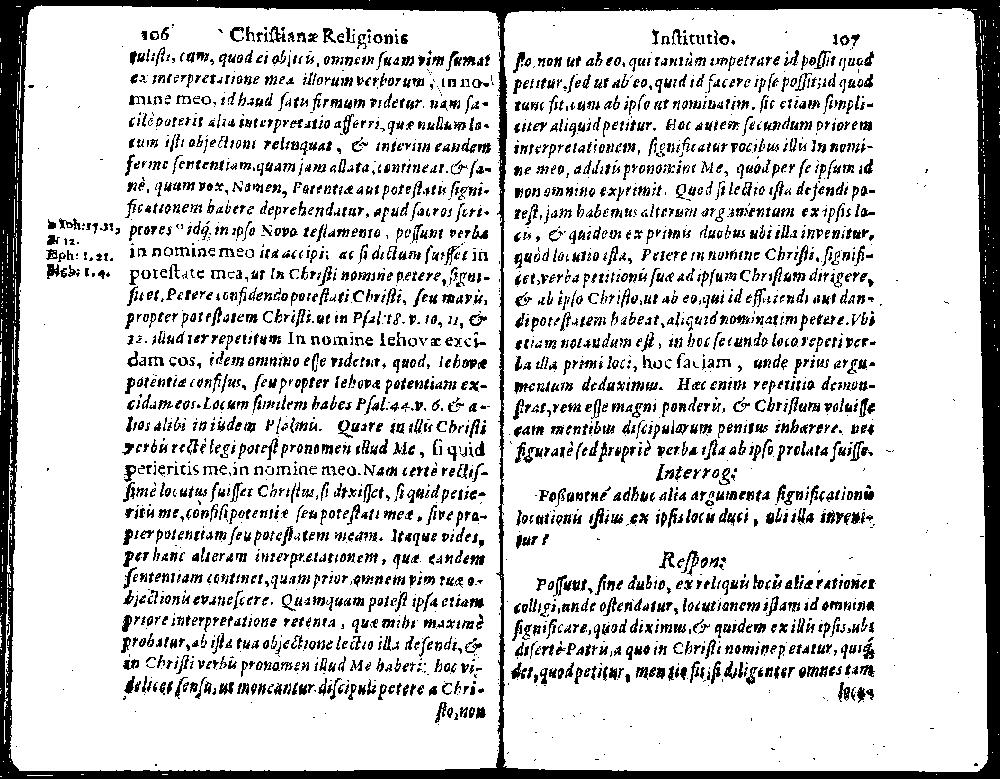 106 Christianæ Religionis
tulisti, cum, quod ei objicis, omnem suam vim sumat
ex interpretatione mea illorum verborum, in no-
mine meo, id haud satis firmum videtur. nam fa-
cilè poterit alia interpretatio afferri, quæ nullum lo-
cum isti objectioni relinquat, & interim eandem
ferme sententiam, quam jam allata, contineat. & sa-
nè, quum vox, Nomen, Potentiæ aut potestatis signi-
ficationem habere deprehendatur, apud sacros scri-
ptores idq́; in ipso Novo testamento, possunt verba
in nomine meo ita accipi: ac si dictum fuisset in
potestate mea, ut In Christi nomine petere, signi-
ficet, Petere confidendo potestati Christi, seu maris,
propter potestatem Christi. ut in Psal. 18. v. 10, 11, &
12. illud ter repetitum In nomine Iehovæ exci-
dam eos, idem omnino esse videtur, quod, Iehovæ
potentiæ confisus, seu propter Iehovæ potentiam ex-
cidam eos. Locum similem habes Psal. 44. v. 6. & a-
lios alibi in iisdem Psalmis. Quare in illis Christi
verbis rectè legi potest pronomen illud Me, si quid
petieritis me, in nomine meo. Nam certè rectis-
simè locutus fuisset Christus, si dixisset, si quid petie-
ritis me, confisi potentiæ seu potestati meæ, sive pro-
pter potentiam seu potestatem meam. Itaque vides,
per hanc alteram interpretationem, quæ eandem
sententiam continet, quam prior, omnem vim tuæ o-
bjectionis evanescere. Quamquam potest ipsa etiam
priore interpretatione retenta, quæ mihi maximè
probatur, ab ista tua objectione lectio illa defendi, &
in Christi verbis pronomen illud Me haberi: hoc vi-
delicet sensu, ut moneantur discipuli petere a Chri-
sto, non
Ioh: 17. 11,
& 12.
Eph: 1. 21.
Heb: 1. 4.
Institutio. 107
sto, non ut ab eo, qui tantùm impetrare id possit quod
petitur, sed ut ab eo, quid id facere ipse possit; id quod
tunc fit, cum ab ipso ut nominatim. sic etiam simpli-
citer aliquid petitur. Hoc autem secundum priorem
interpretationem, significatur vocibus illis In nomi-
ne meo, addito pronomine Me, quod per se ipsum id
non omnino exprimit. Quod si lectio ista defendi po-
test, jam habemus alterum argumentum ex ipsis lo-
cis, & quidem ex primis duobus ubi illa invenitur,
quòd locutio ista, Petere in nomine Christi, signifi-
cet, verba petitionis suæ ad ipsum Christum dirigere,
& ab ipso Christo, ut ab eo, qui id efficiendi aut dan-
di potestatem habeat, aliquid nominatim petere. Vbi
etiam notandum est, in hoc secundo loco repeti ver-
ba illa primi loci, hoc faciam, unde prius argu-
mentum deduximus. Hæc enim repetitio demon-
strat, rem esse magni ponderis, & Christum voluisse
eam mentibus discipulorum penitus inhærere. nec
figuratè sed propriè verba ista ab ipso prolata fuisse.
Interrog:
Possuntné adhuc alia argumenta significationis
locutionis istius ex ipsis locis duci, ubi illa inveni-
tur?
Respon:
Possunt, sine dubio, ex reliquis locis aliæ rationes
colligi, unde ostendatur, locutionem istam id omnino
significare, quod diximus, & quidem ex illis ipsis, ubi
disertè Patris, a quo in Christi nomine petatur, quid
det, quod petitur, mentio fit, si diligenter omnes tam
locus